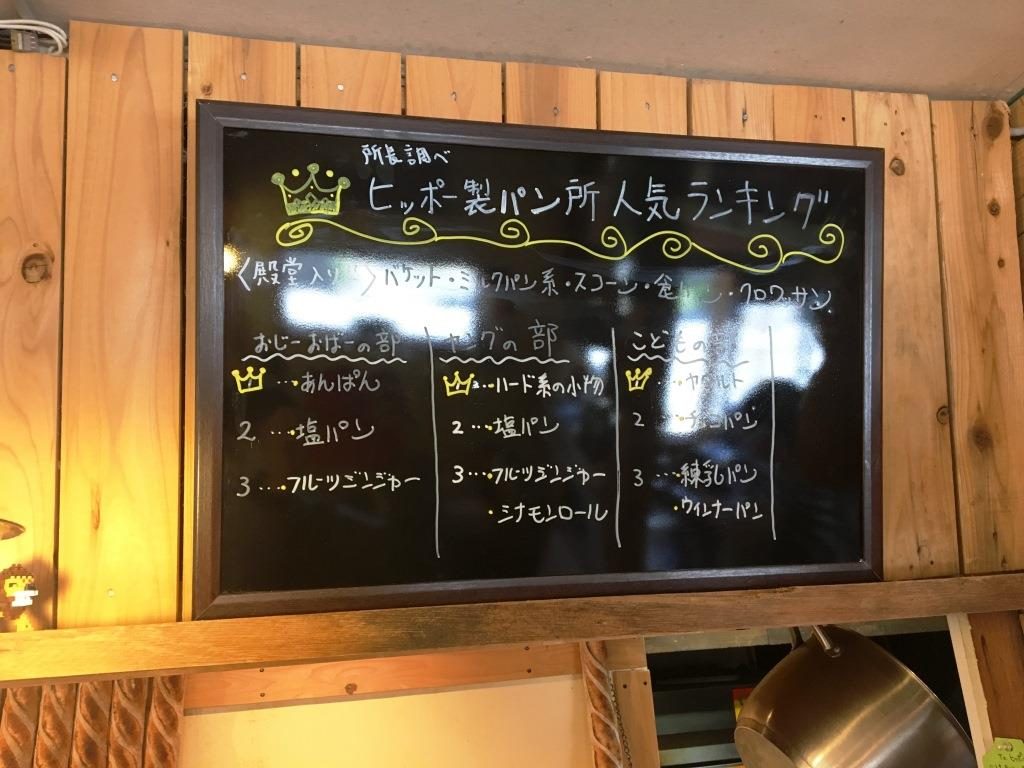 所長調べ
ヒッポー製パン所 人気ランキング
〈殿堂入り〉バケット・ミルクパン系・スコーン・食パン・クロワッサン
おじーおばーの部
…あんぱん
2 …塩パン
3 …フルーツジンジャー
ヤングの部
…ハード系の小物
2 …塩パン
3 …フルーツジンジャー
・シナモンロール
こどもの部
…ヤクルト
2 …チョコパン
3 …練乳パン
・ウインナーパン